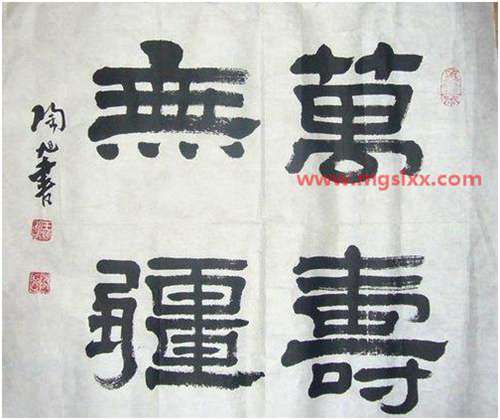 萬壽
無疆
陶旭書
www.mgslxx.com